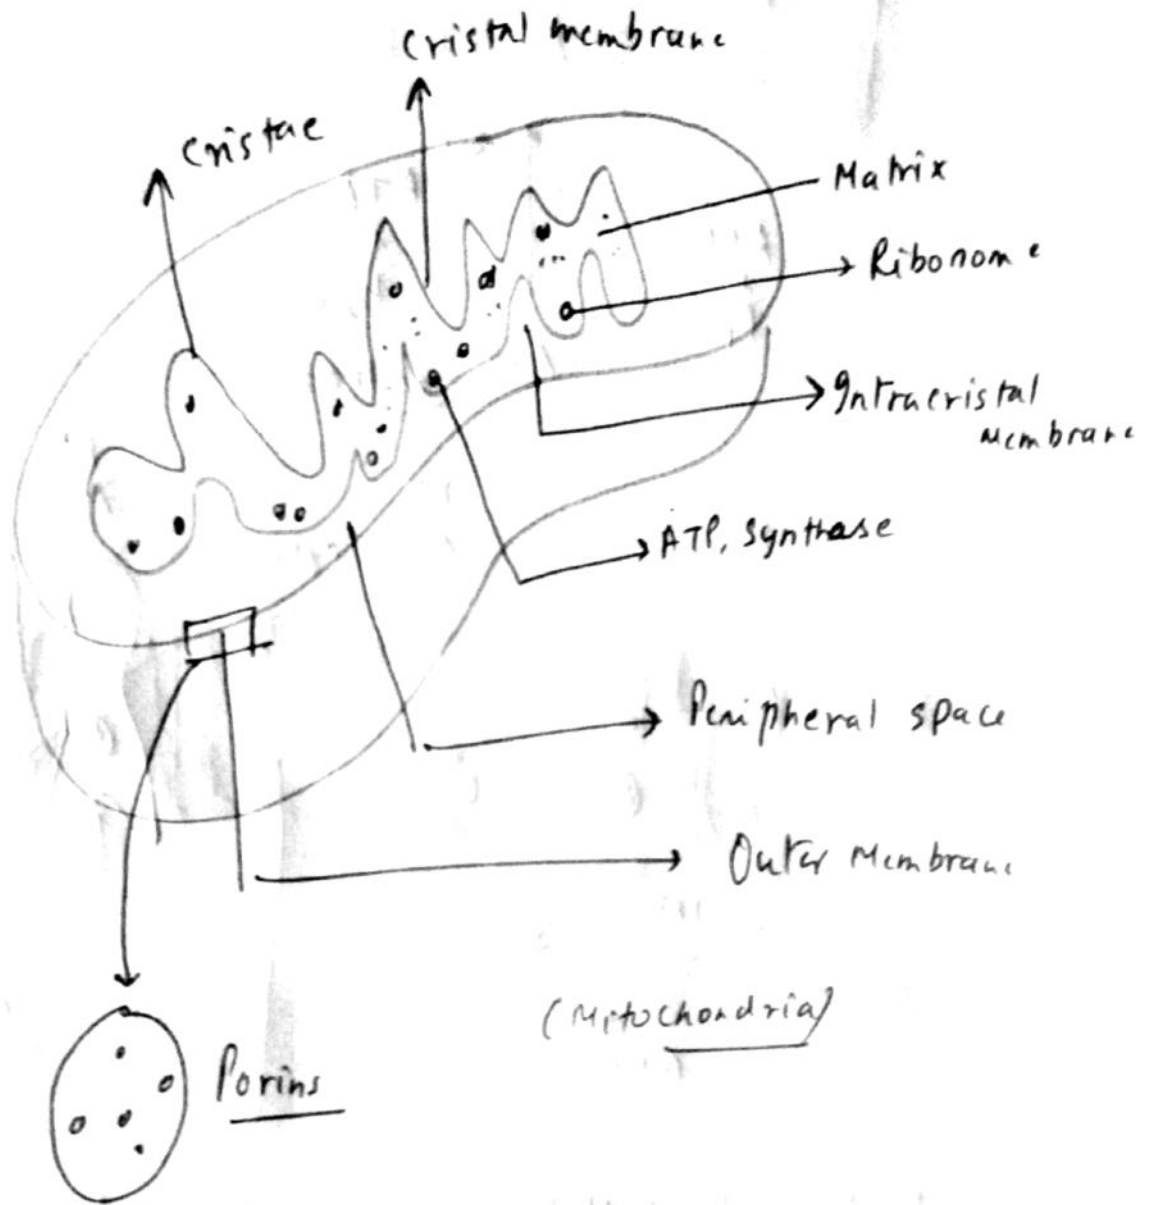 Cristal membrane
Cristae
Matrix
Ribonome
Intracristal
Membrane
ATP, Synthase
Peripheral space
Outer Membrane
(Mitochondria)
Porins